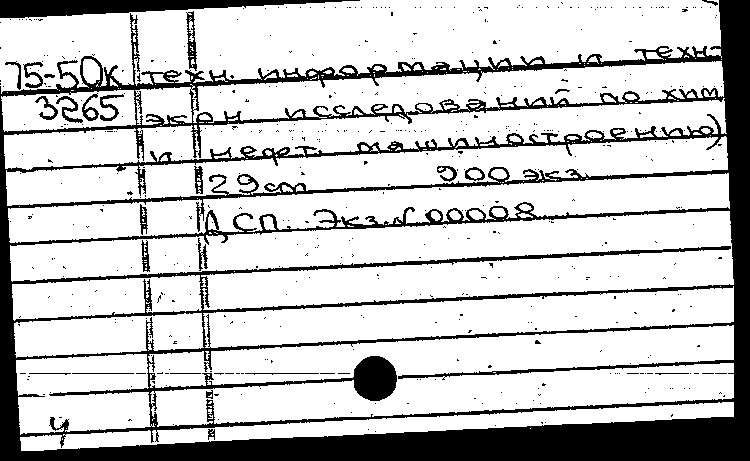 75-50к техн. информации и техн-
3265 экон исследований по хим.
и нефт. машиностроению)
29cm 900 экз.
ДСП. Экз.№00008
4